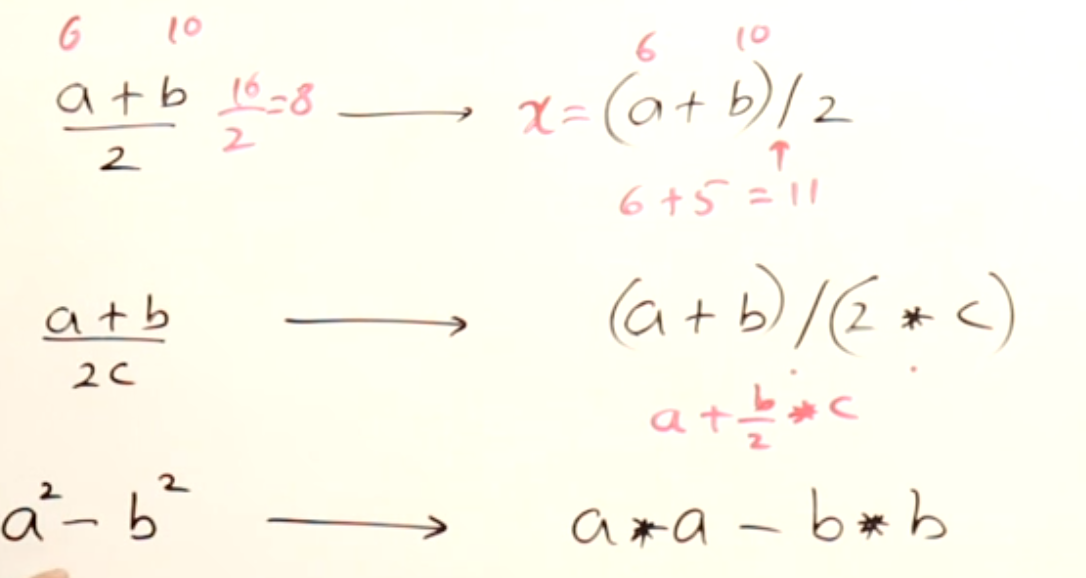 6 10
a + b / 2 16/2 = 8 → x = (a + b) / 2
6 10
↑
6 + 5 = 11
a + b / 2c → (a + b) / (2 * c)
a + b/2 * c
a² - b² → a * a - b * b